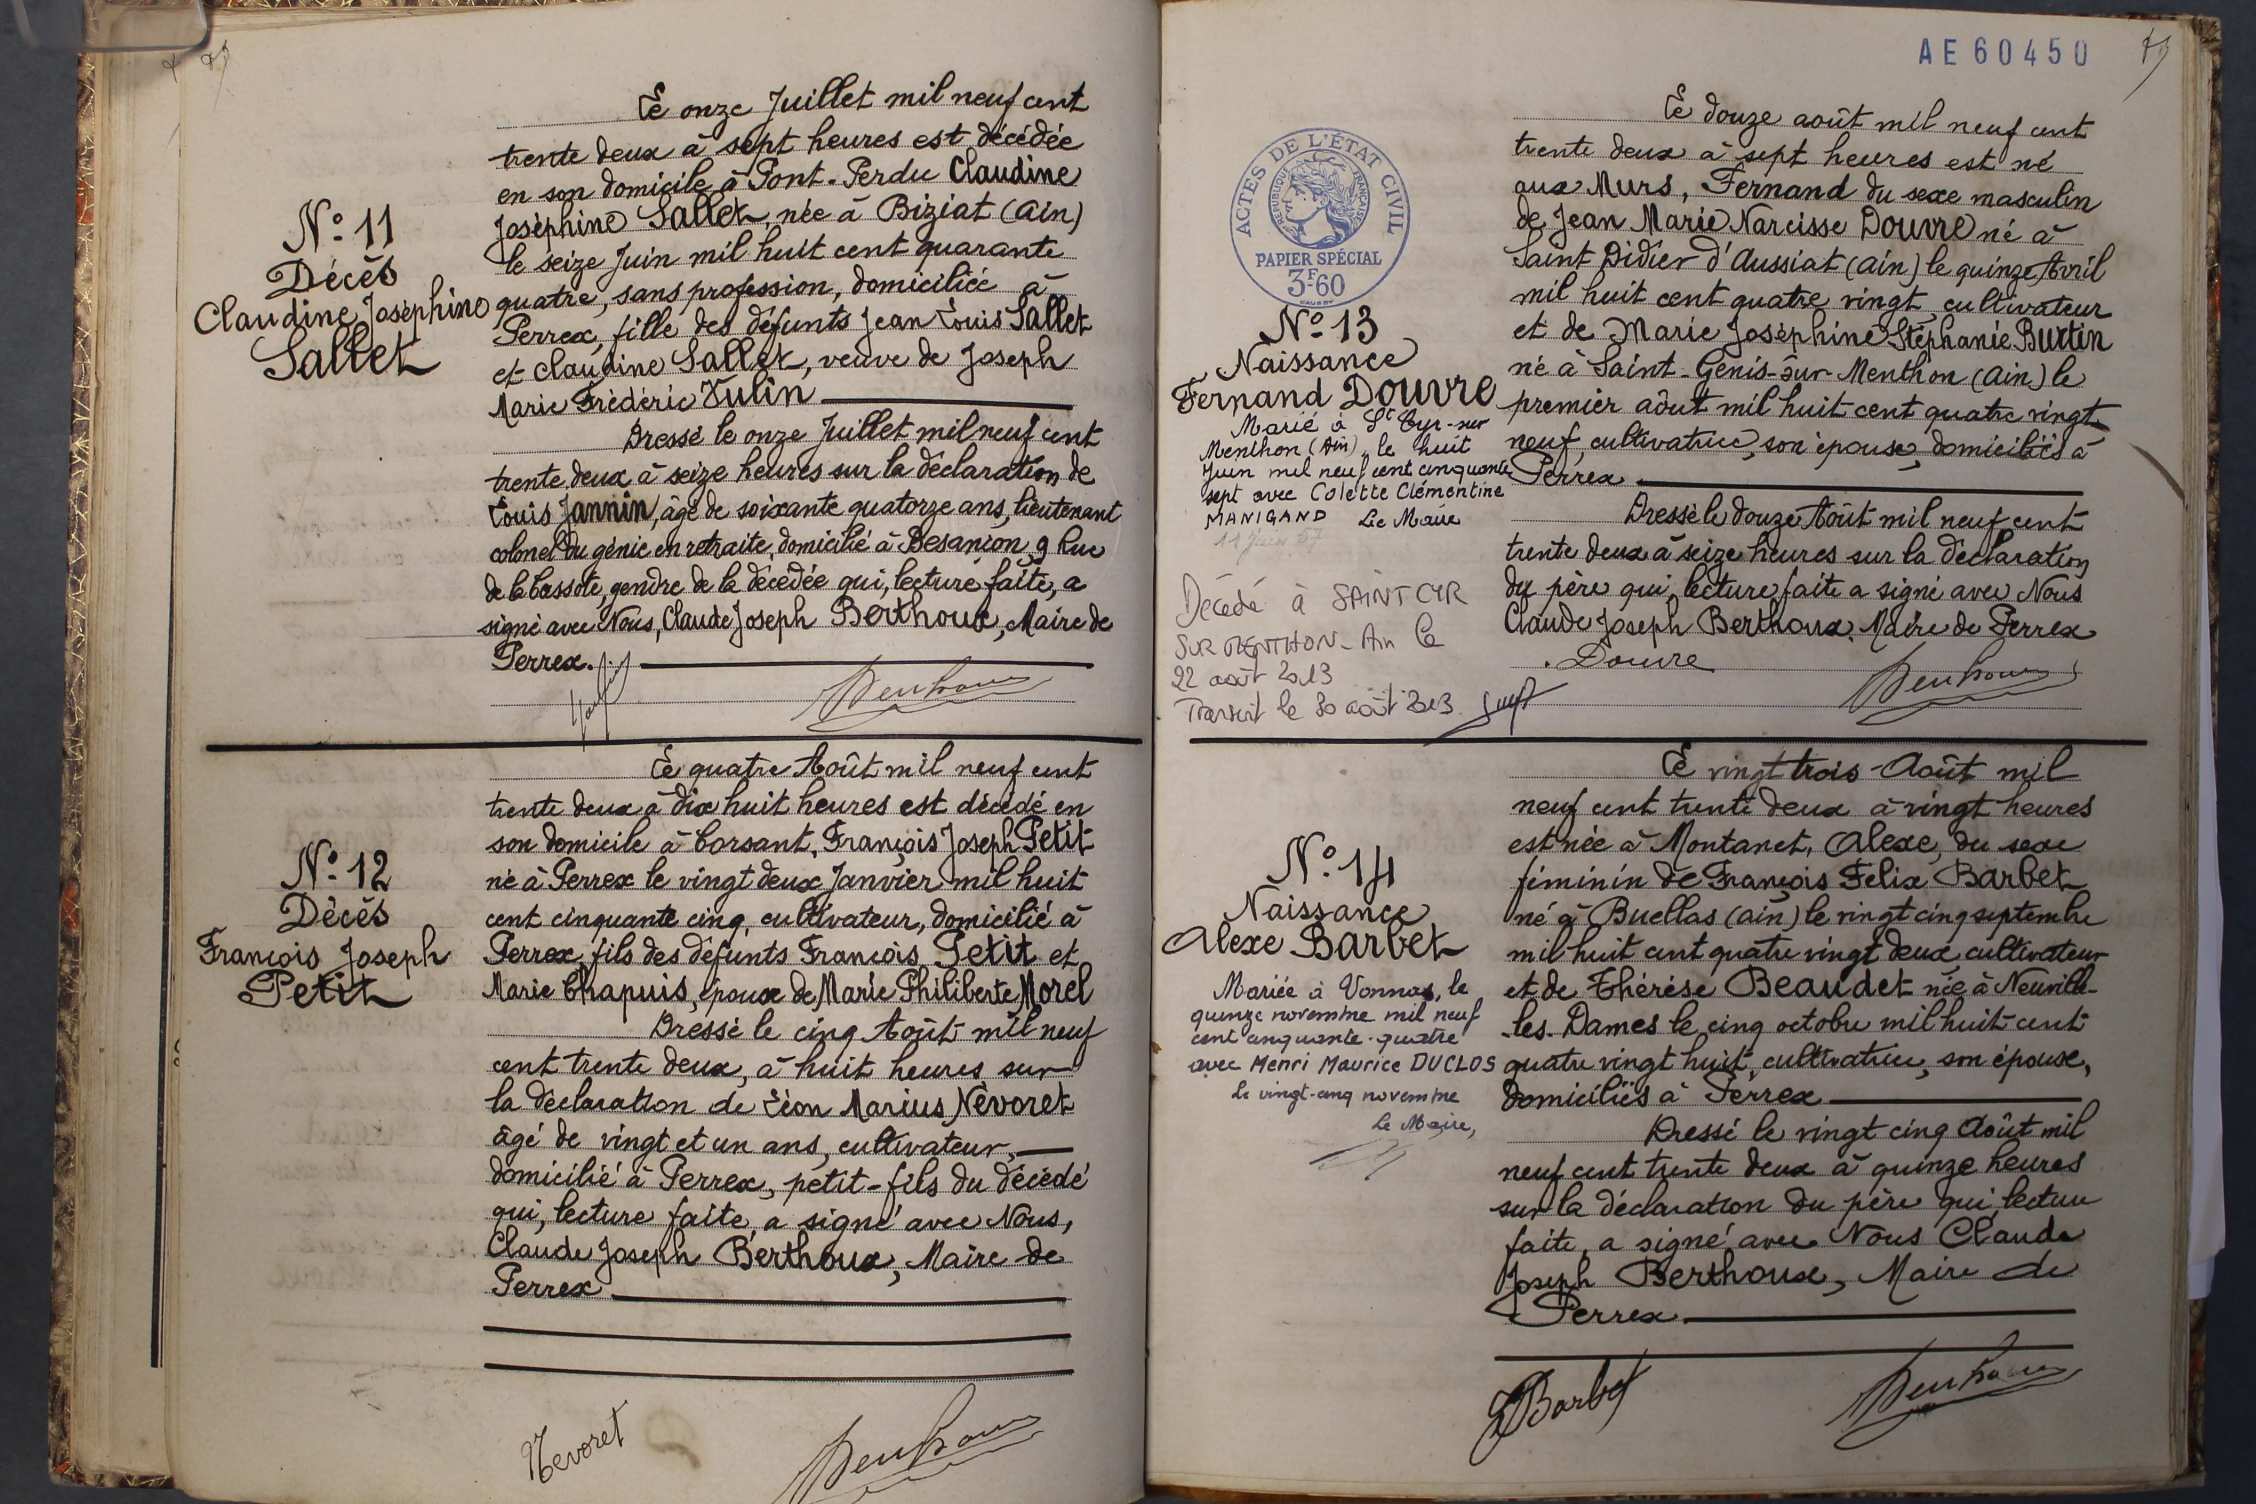 Le onze Juillet mil neuf cent
trente deux à sept heures est décédée
en son domicile à Pont-Perdu Claudine
Joséphine Sallet, née à Biziat (Ain)
le seize Juin mil huit cent quarante
quatre, sans profession, domiciliée à
Perrex, fille des défunts Jean Louis Sallet
et Claudine Sallet, veuve de Joseph
Marie Frédéric Vulin
Dressé le onze Juillet mil neuf cent
trente deux à seize heures sur la déclaration de
Louis Jannin, âgé de soixante quatorze ans, lieutenant
colonel du génie en retraite, domicilié à Besançon, 9 Rue
de la Cassote, gendre de la décédée qui, lecture faite, a
signé avec Nous, Claude Joseph Berthoux, Maire de
Perrex.
N° 11
Décès
Claudine Joséphine
Sallet
Le quatre Août mil neuf cent
trente deux à dix huit heures est décédé en
son domicile à Corsant, François Joseph Petit
né à Perrex le vingt deux Janvier mil huit
cent cinquante cinq, cultivateur, domicilié à
Perrex, fils des défunts François Petit et
Marie Chapuis, époux de Marie Philiberte Morel
Dressé le cinq Août mil neuf
cent trente deux, à huit heures sur
la déclaration de Léon Marius Névoret
âgé de vingt et un ans, cultivateur,
domicilié à Perrex, petit-fils du décédé
qui, lecture faite, a signé avec Nous,
Claude Joseph Berthoux, Maire de
Perrex
N° 12
Décès
François Joseph
Petit
Nevoret
AE 60450
ACTES DE L'ÉTAT CIVIL
RÉPUBLIQUE FRANÇAISE
PAPIER SPÉCIAL
3F.60
N° 13
Naissance
Fernand Douvre
Marié à St Cyr-sur
Menthon (Ain), le huit
Juin mil neuf cent cinquante
sept avec Colette Clémentine
MANIGAND Le Maire
Décédé à SAINT CYR
SUR MENTHON - Ain le
22 août 2013
Transcrit le 30 août 2013
Le douze août mil neuf cent
trente deux à sept heures est né
aux Murs, Fernand du sexe masculin
de Jean Marie Narcisse Douvre né à
Saint Didier d'Aussiat (Ain) le quinze Avril
mil huit cent quatre vingt, cultivateur
et de Marie Joséphine Stéphanie Burtin
né à Saint-Genis-sur-Menthon (Ain) le
premier aôut mil huit cent quatre vingt
neuf, cultivatrice, son épouse, domiciliés à
Perrex
Dressé le douze Août mil neuf cent
trente deux à seize heures sur la déclaration
du père qui, lecture faite a signé avec Nous
Claude Joseph Berthoux, Maire de Perrex
Douvre
N° 14
Naissance
Alexe Barbet
Mariée à Vonnas, le
quinze novembre mil neuf
cent cinquante-quatre
avec Henri Maurice DUCLOS
Le vingt-cinq novembre
Le Maire,
Le vingt trois Août mil
neuf cent trente deux à vingt heures
est née à Montanet, Alexe, du sexe
féminin de François Felix Barbet
né à Buellas (Ain) le vingt cinq septembre
mil huit cent quatre vingt deux, cultivateur
et de Thérèse Beaudet née à Neuville-
les-Dames le cinq octobre mil huit cent
quatre vingt huit, cultivatrice, son épouse,
domiciliés à Perrex
Dressé le vingt cinq Août mil
neuf cent trente deux à quinze heures
sur la déclaration du père qui, lecture
faite, a signé avec Nous Claude
Joseph Berthoux, Maire de
Perrex
Barbet